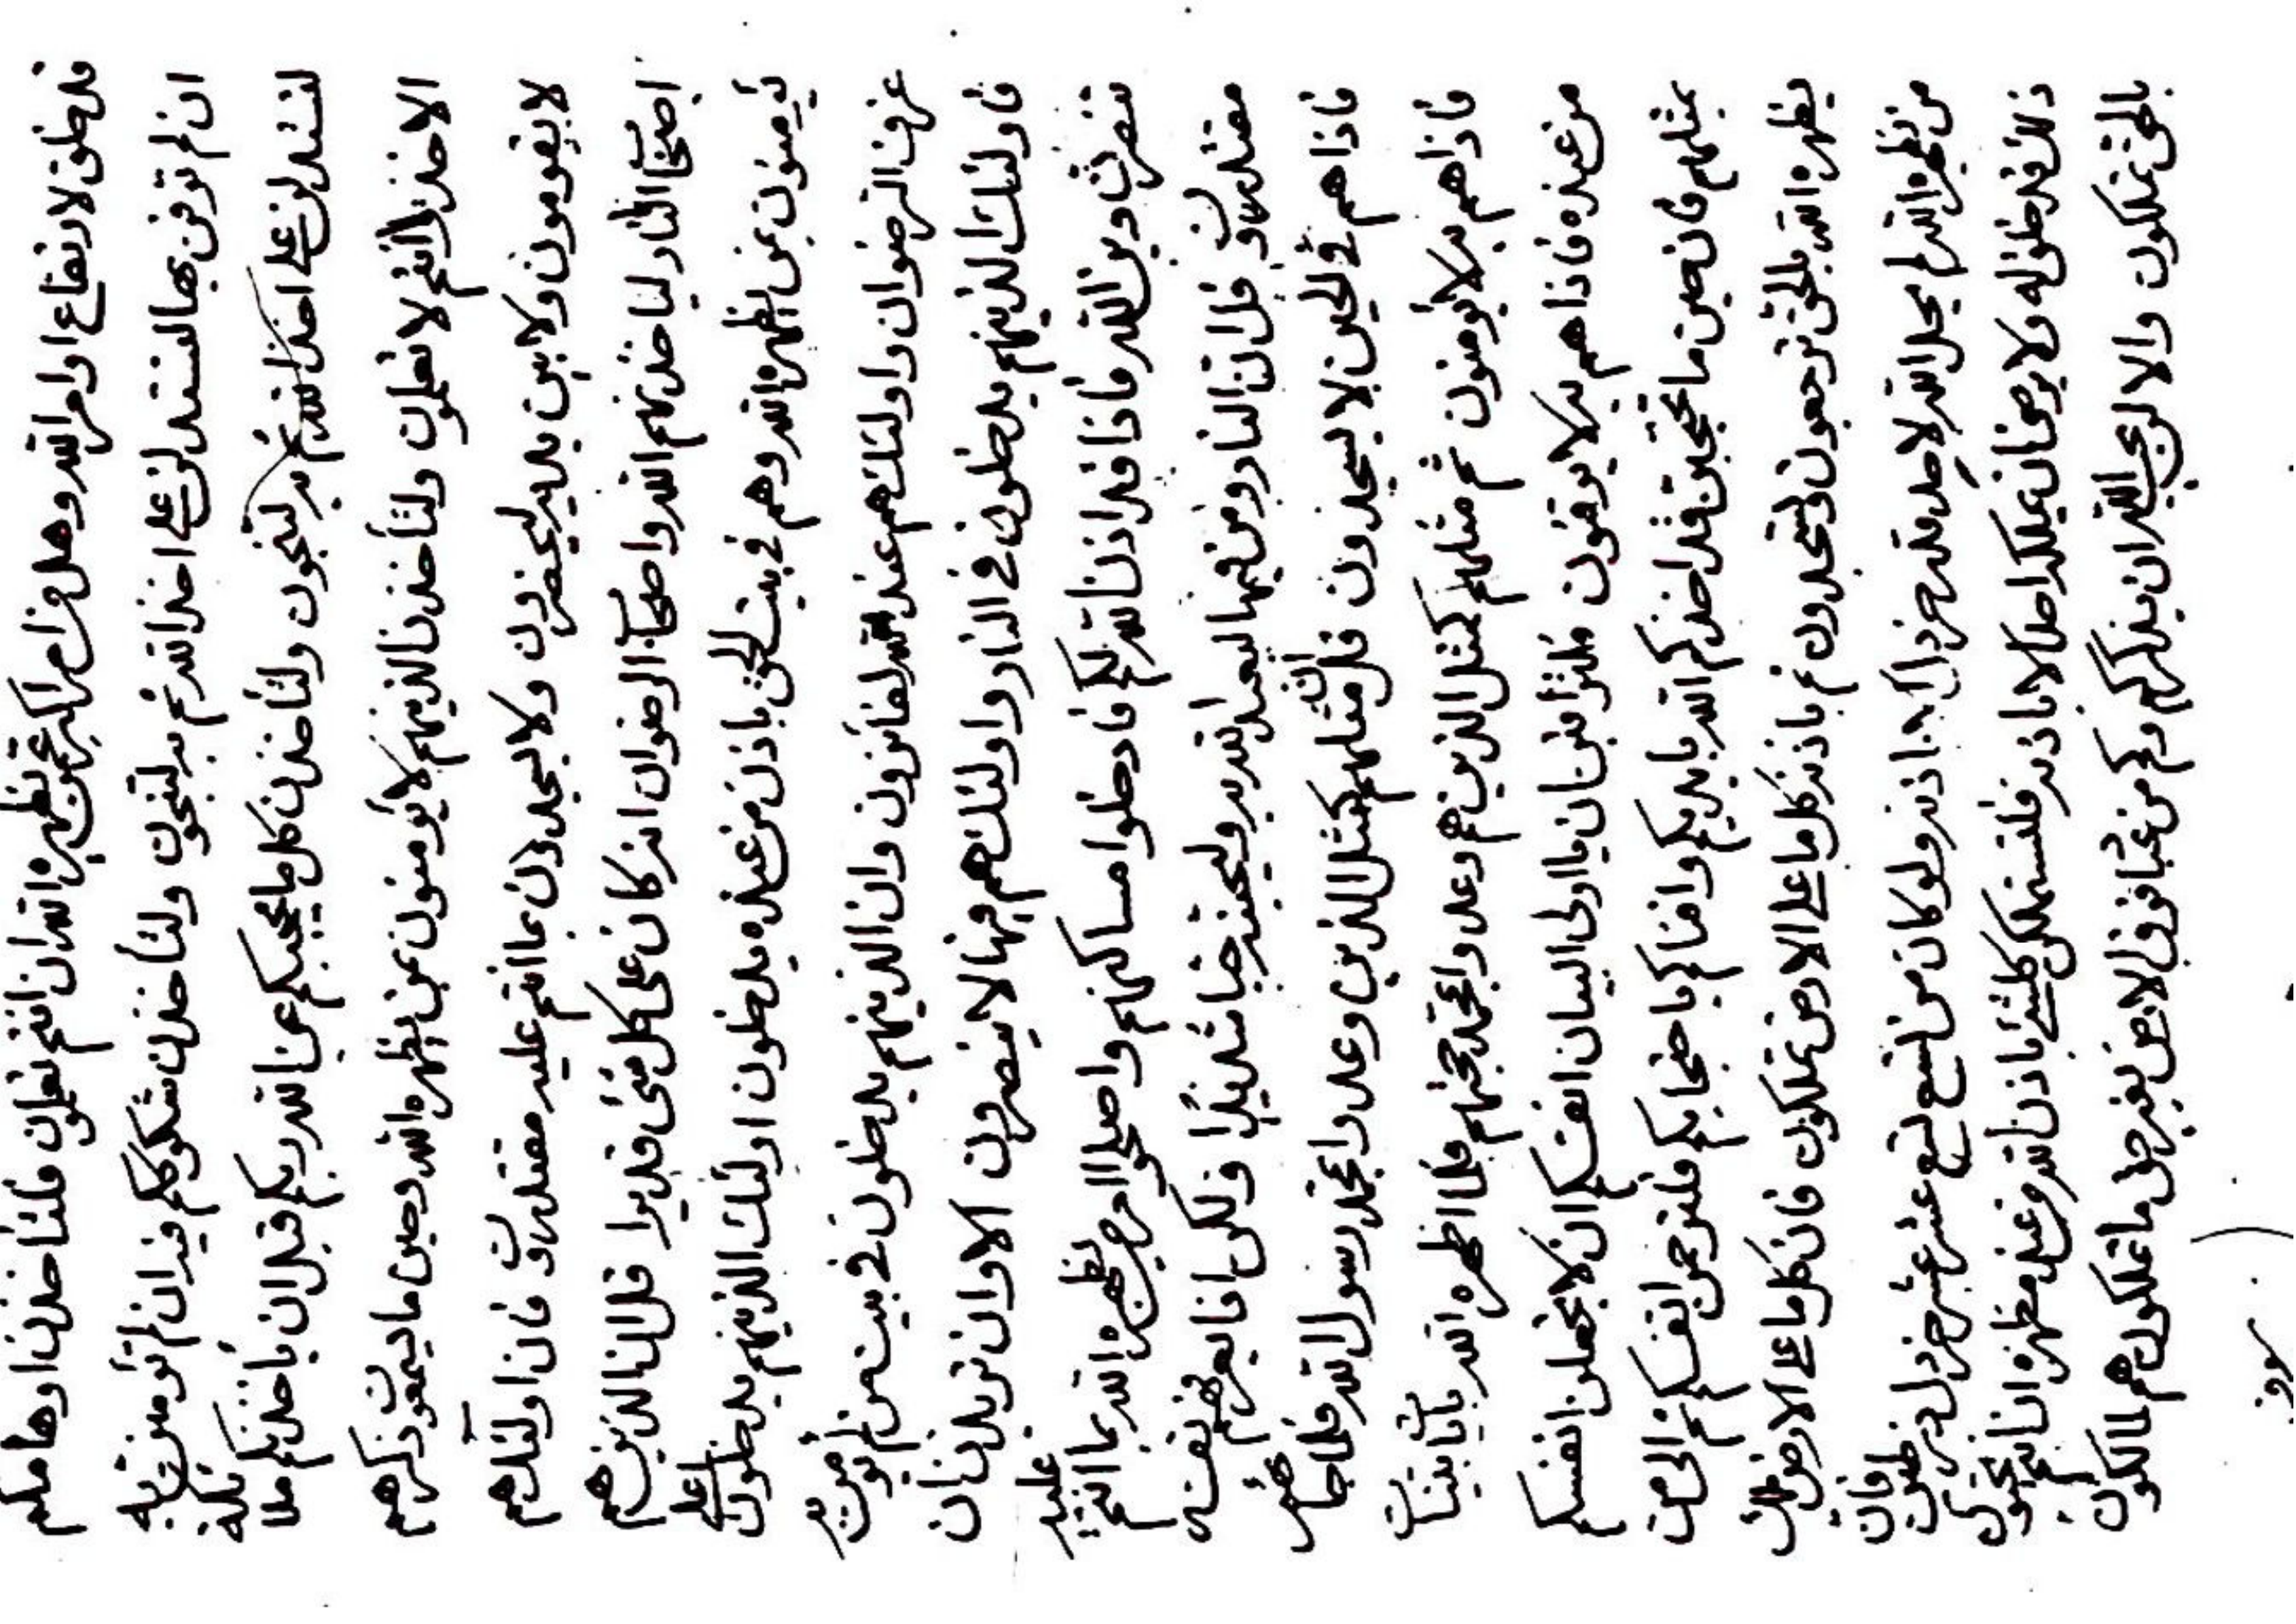 فلخلق لارتفاع اوامر الله وهل من امر اكبر عمن يظهره الله ان انتم تعلمون فلتأخذن اوهامكم
ان لم توقن بها لتستدلون على اخذ الله ثم به لتنجون ولتأخذن شكوككم فيه ان لم تؤمنن به
لتستدلون على اخذ الله ثم به لتنجون ولتأخذن كل ما يحجبكم عن الله ربكم قبل ان يأخذنكم ملائكة
الاخذ وانتم لا تعلمون ولتأخذن الذينهم لا يؤمنون بمن يظهره الله وحين ما يسمعون ذكرهم
لا يقومون ولا بين يديه ليحضرون ولا يسجدون بما انتم عليه مقتدرون فان اولئك هم
اصحاب النار لياخذنهم الله واصحاب الرضوان انه كان على كل شئ قديرا قل ان الذين هم
يؤمنون بمن يظهره الله وهم في بيت الحق باذن من عنده يدخلون اولئك الذينهم يدخلون اعلى
غرف الرضوان واولئك هم عند الله لفائزون وان الذينهم يدخلون في بيت من لم يؤمن به
فاولئك الذينهم يدخلون في النار واولئك هم فيها لا ينصرون الا وان تريدن ان
دين الله فاذا قد اذن الله لكم فادخلوا مساكنهم واصلحوا امر من يظهره الله بما انتم عليه
مقتدرون قل ان النار ومن فيها ليعبد الله ربه وليحبنه حبا شديدا ولكن اذا يعرفهم نفسه
فاذا هم في الحين لا يسجدون قل مثلهم كمثل الذين وعدوا بمحمد رسول الله فلما جائهم
فاذا هم به لا يؤمنون ثم مثلهم كمثل الذين هم وعدوا بمحمد حجتهم فلما اظهره الله بآيات بينات
من عنده فاذا هم به لا يوقنون فلتراقبن ان يا اولى البيان انفسكم ان لا تجعلن انفسكم
بمثلهم فان حين ما تحتجبن قد اخذكم الله بايديكم وافناكم باحتجابكم فلترحمن انفسكم ثم الى من
يظهره الله بالحق ترجعون وتسجدون ثم باذنه كل ما على الارض تملكون فان كل ما على الارض ملك
من يظهره الله لم يحل الله لاحد قدر خردل الا باذنه ولو كان من تسع تسع عشر عشر خردل فان
ذلك قد خلق له ولا يرضى ان يملك احد الا باذنه فلتستملكن كلشئ باذن الله من عند مظهره اذا انتم تحبون
بالحق تملكون والا لم يحب الله ان يذكركم من فوق الارض بغير حق ما تملكون هم مالكون